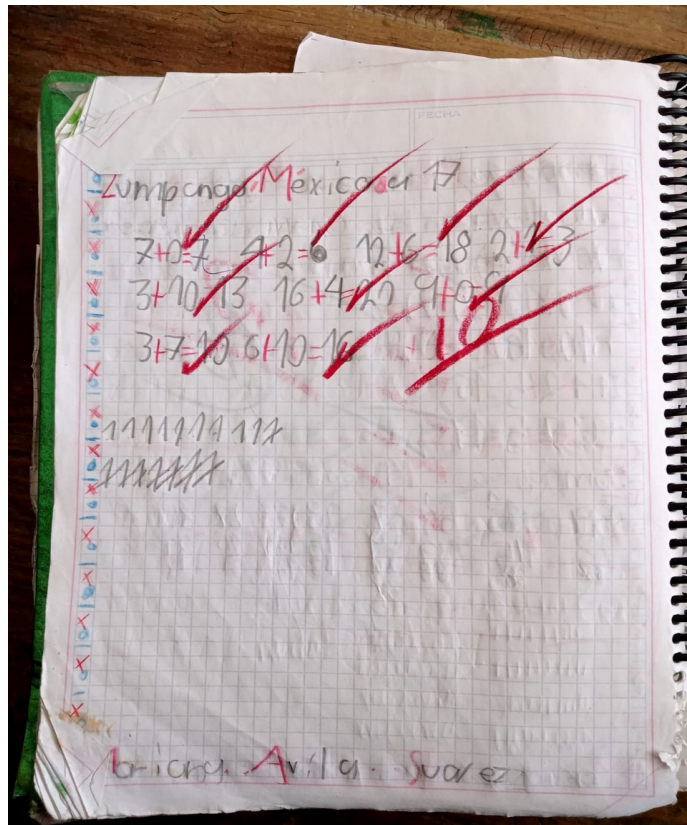 FECHA
Zumpango México a 17
7+0=7 4+2= 12+6=18 2+1=3
3+10=13 16+4=20 9+0=9
3+7=10 6+10=16
10
1111111 111
11111111
Avila Suarez